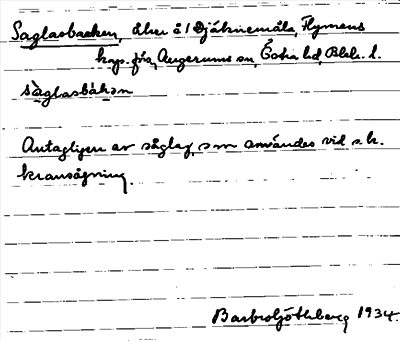 Saglasbacken, åker å 1 Djäknemåla, Flymens
kap. förs, Augerums sn, Östra hd, Blek. l.
sàglasbákən
Antagligen av såglag, som användes vid s.k.
kransågning.
Barbro Götherberg 1934.